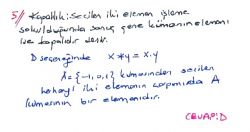 5// Kapalılık: Seçilen iki eleman işleme
sokulduğunda sonuç gene kümenin elemanı
ise kapalıdır denir.
D seçeneğinde x * y = x.y
A = {-1, 0, 1} kümesinden seçilen
herhangi iki elemanın çarpımında A
kümesinin bir elemanıdır.
CEVAP: D